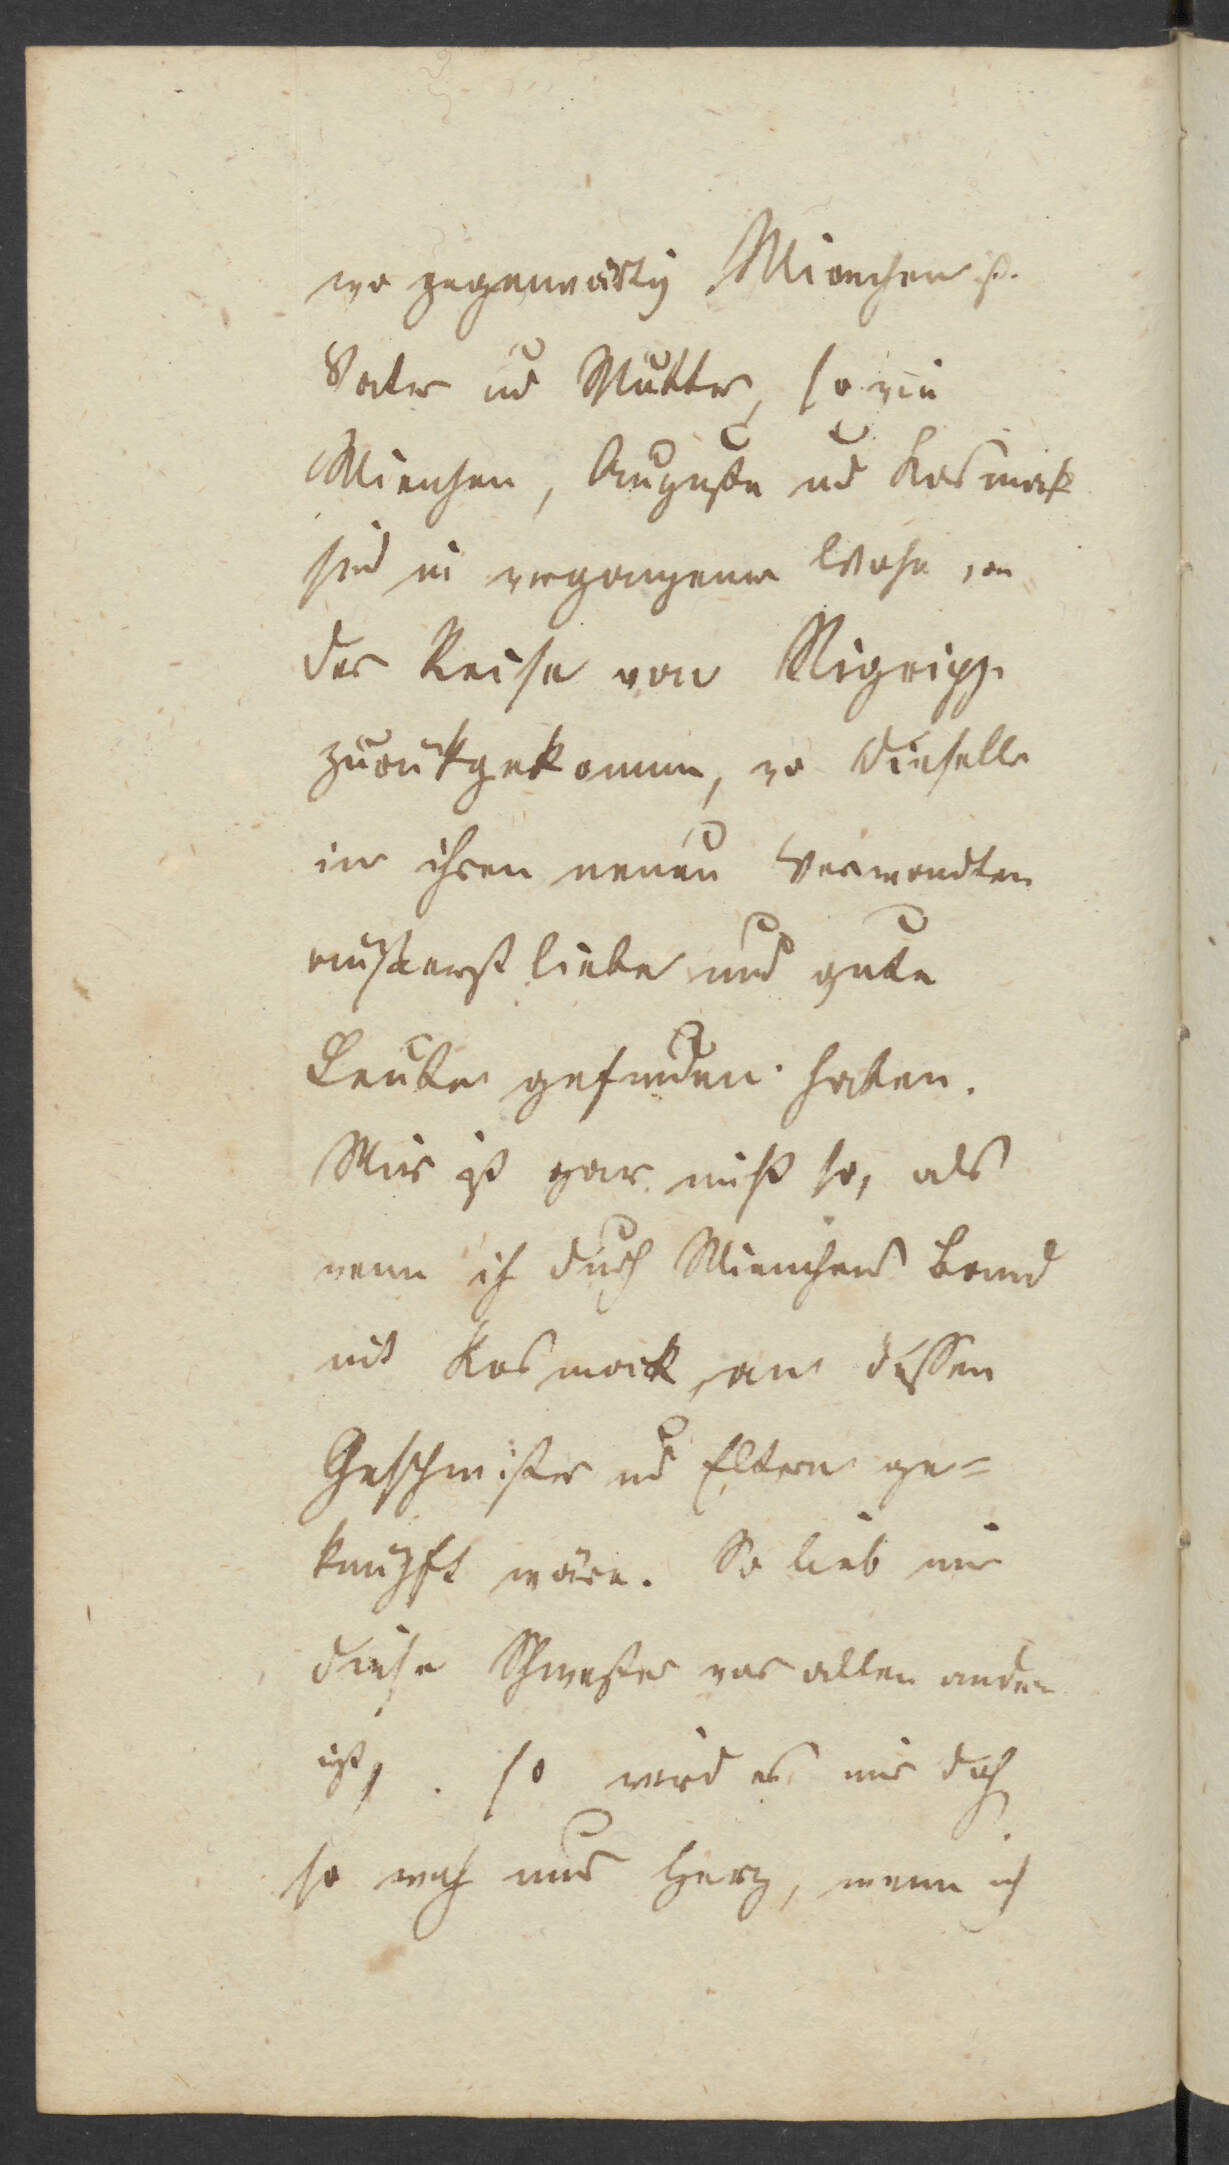 wo gegenwärtig Mienchen ist.
Vater und Mutter, so wie
Mienchen, Auguste und Kosmak
sind in vergangener Woche von
der Reise von Nigripp
zurükgekommen, wo dieselbe
in ihren neuen Verwandten
äußerst liebe und gute
Leute gefunden haben.
Mir ist gar nicht so, als
wenn ich durch Mienchens Band
mit Kosmack an dessen
Geschwister und Eltern ge=
knüpft wäre. So lieb mir
diese Schwester vor allen andern
ist, so wird es mir doch
so weh ums Herz, wenn ich